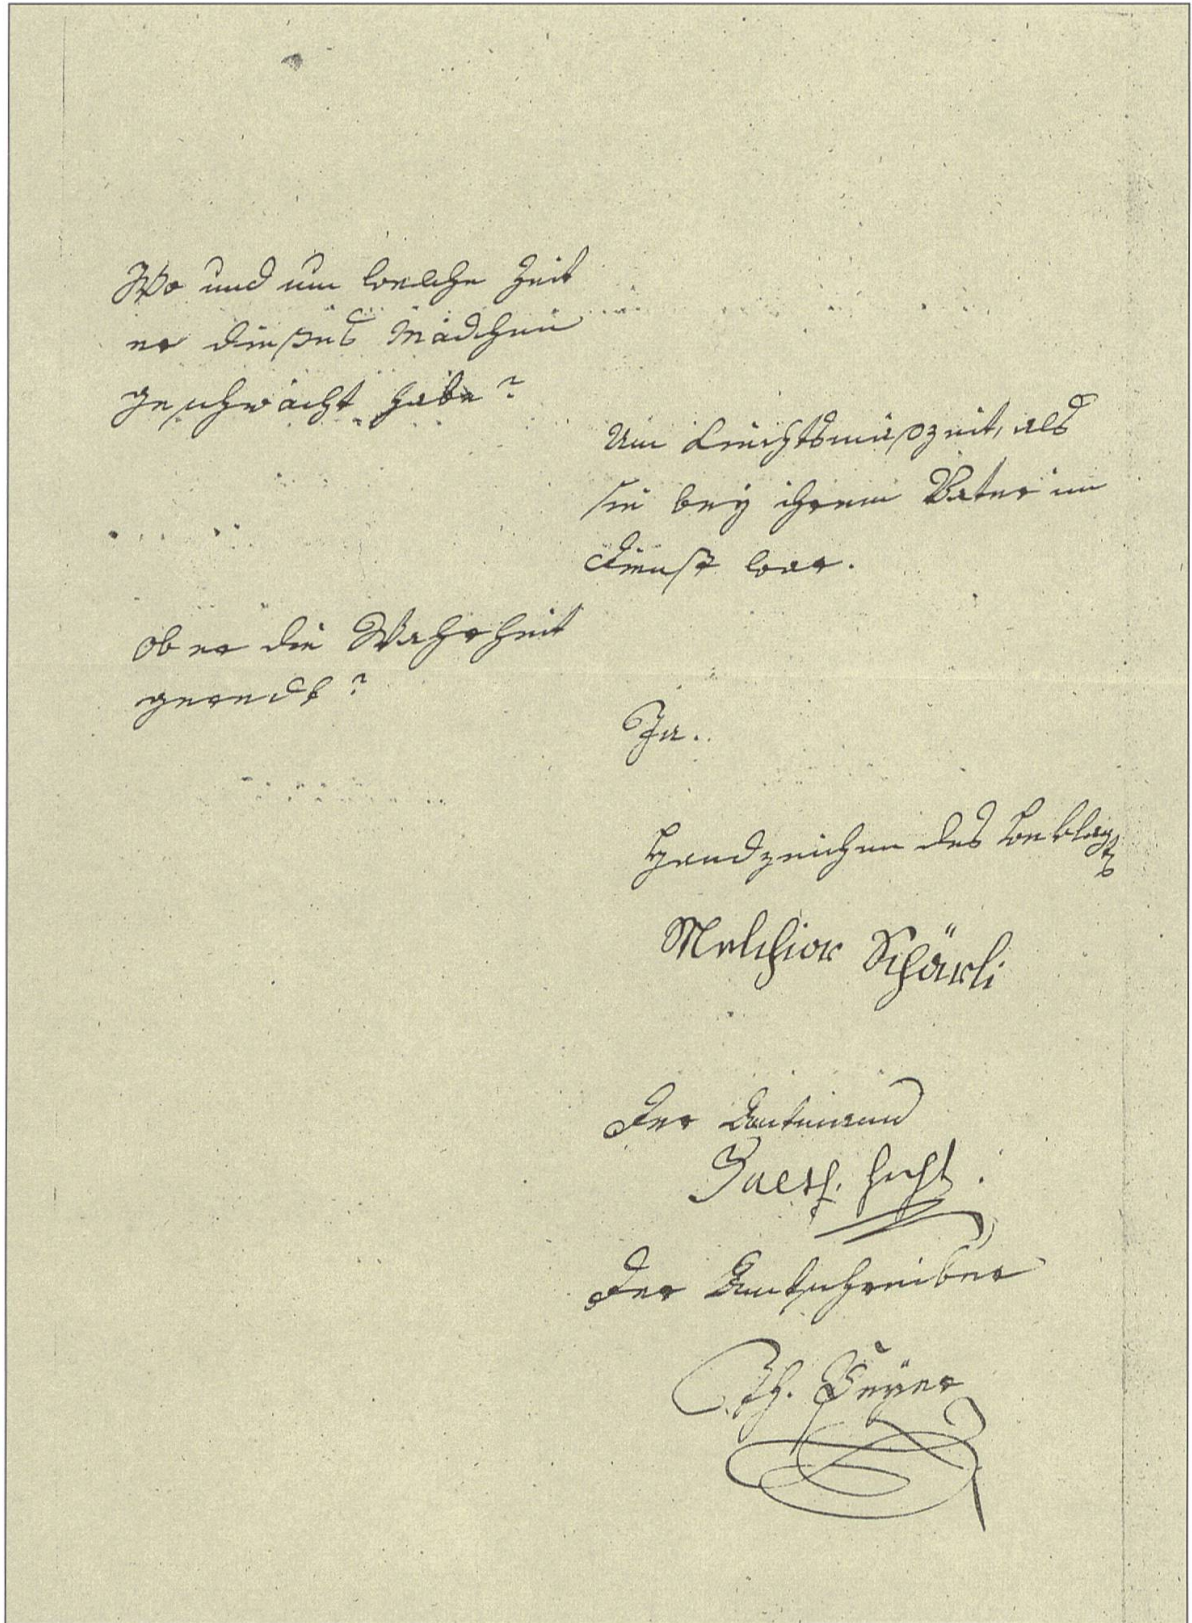 Wo und um welche Zeit
er dießes Mädchen
geschwächt habe?
Um Liechtsmäßzeit, als
sie bey ihrem Vater im
Dienst war.
Ob er die Wahrheit
geredt?
Ja.
Handzeichen des Beklagt
Melchior Schärli
Der Amtmann
Der Amtschreiber